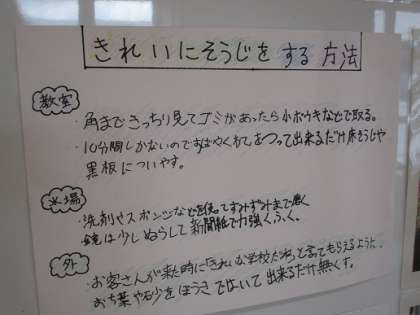 きれいにそうじをする方法
教室
・角まできっちり見てゴミがあったら小ボウキなどで取る。
・10分間しかないのですばやくおわて出来るだけ床そうじや
黒板についやす。
水場
・洗剤やスポンジなどを使ってすみずみまで磨く
鏡は少しぬらして新聞紙で力強くふく。
外
・お客さんが来た時に「きれいな学校だね」と言ってもらえるように
おち葉や砂をほうきではいて出来るだけ無くす。